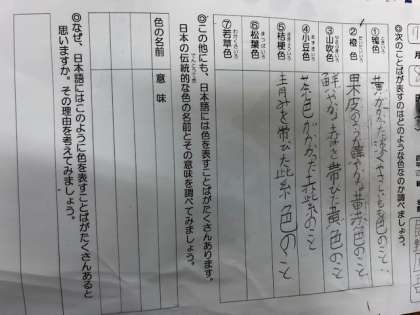 ◎次のことばが表すのはどのような色なのか調べましょう。
①鴇色
②橙色
③山吹色
④小豆色
⑤桔梗色
⑥松葉色
⑦若草色
黄がかった淡くやさしい色のこと。
果皮のような鮮やかな黄赤色のこと
鮮やかな赤みを帯びた黄色のこと
茶色がかかった赤紫のこと
青みを帯びた紫色のこと
◎この他にも、日本語には色を表すことばがたくさんあります。
日本の伝統的な色の名前とその意味を調べてみましょう。
色の名前
意味
◎なぜ、日本語にはこのように色を表すことばがたくさんあると
思いますか。その理由を考えてみましょう。